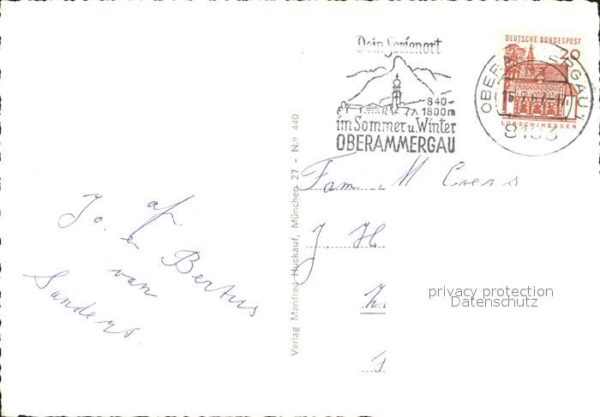 Dein Ferienort
840-
1800m
im Sommer u. Winter
OBERAMMERGAU
DEUTSCHE BUNDESPOST
20
LORSCH/HESSEN
OBERAMMERGAU 1
8103
Verlag Manfred Huckauf, München 27 - N.º 440
Fam. M
J. H
privacy protection
Datenschutz
af.
Jo. en Bertus
van
Sanders.